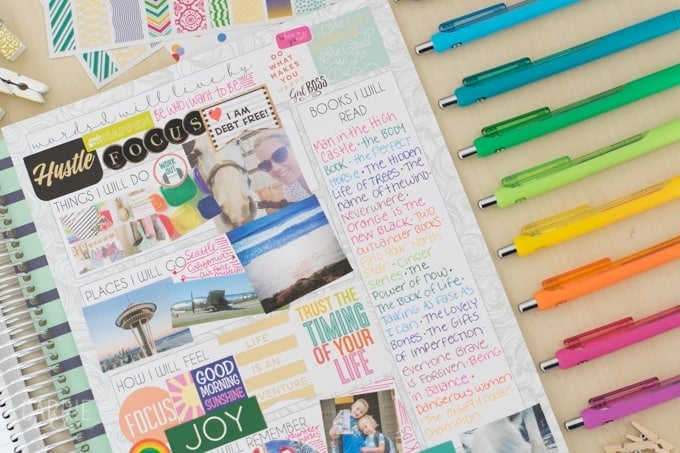 words I will live by
Be who I want to be
DO
WHAT
MAKES
YOU
Girl BOSS
She
Hustle
FOCUS
I AM
DEBT FREE!
THINGS I WILL DO
WORK
OUT
PLACES I WILL GO
Seattle
California
air force
museum
HOW I WILL FEEL
LIFE
IS AN
VENTURE
FOCUS
GOOD
MORNING
SUNSHINE
JOY
WILL REMEMBER
TRUST THE
TIMING
OF YOUR
LIFE
BOOKS I WILL
READ
Man in the High
Castle • the Body
Book • the Perfect
Horse • The Hidden
Life of Trees • The
name of the wind •
Neverwhere •
orange is the
new Black • Two
Outlander Books •
Find Your North
Star • Cinder
Series • The
Power of now •
The Book of Life •
Talking As Fast As
I Can • The Lovely
Bones • The Gifts
of Imperfection •
Everyone Brave
is Forgiven • Being
in Balance •
Dangerous women
• The Eighty Dollar
Champion